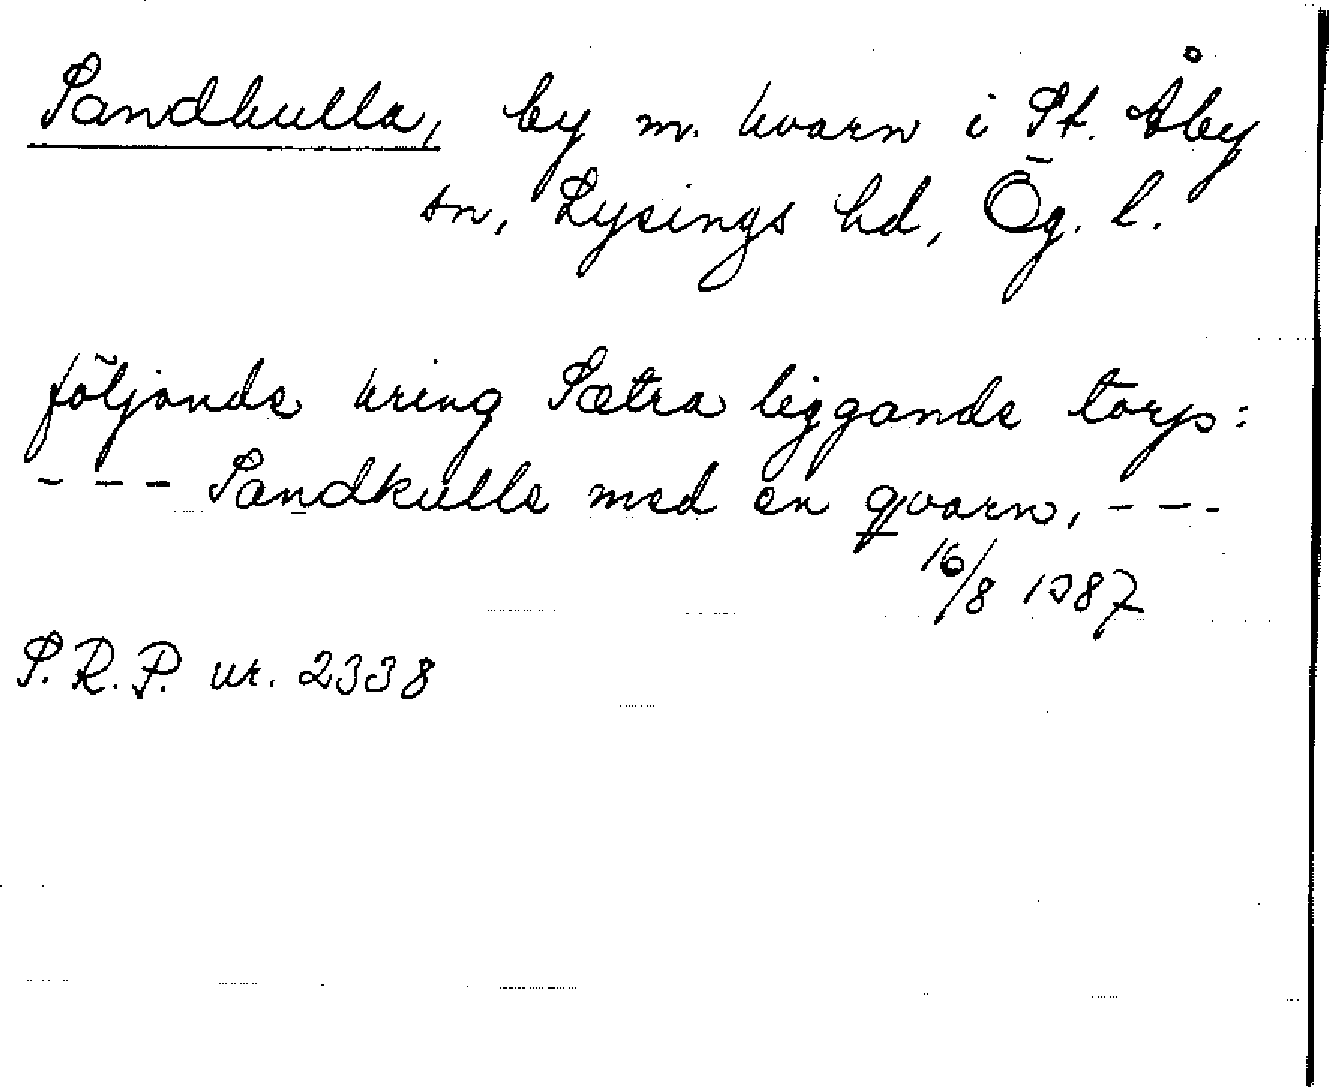 Sandkulla, by m. kvarn i St. Åby
sn, Lysings hd, Ög. l.
följande kring Sætra liggande torp:
- - - Sandkulle med en qvarn, - - -
16/8 1387
S.R.P. nr. 2338